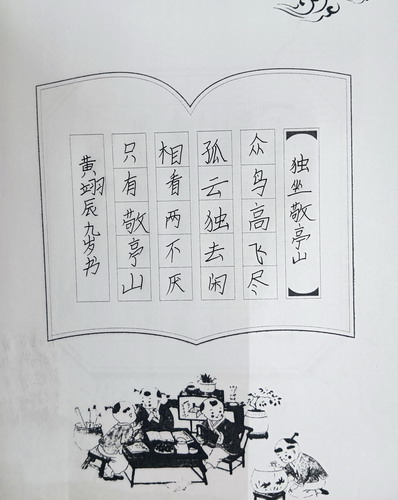 独坐敬亭山
众鸟高飞尽
孤云独去闲
相看两不厌
只有敬亭山
黄翊辰九岁书